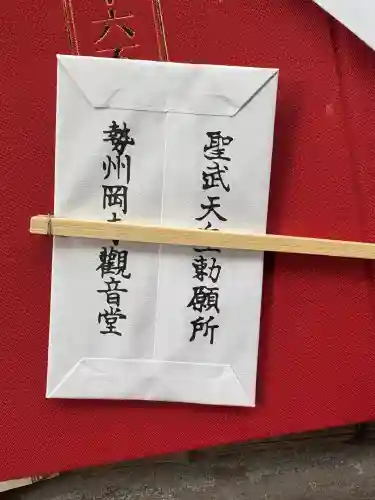 聖武天皇勅願所
勢州岡寺觀音堂
六